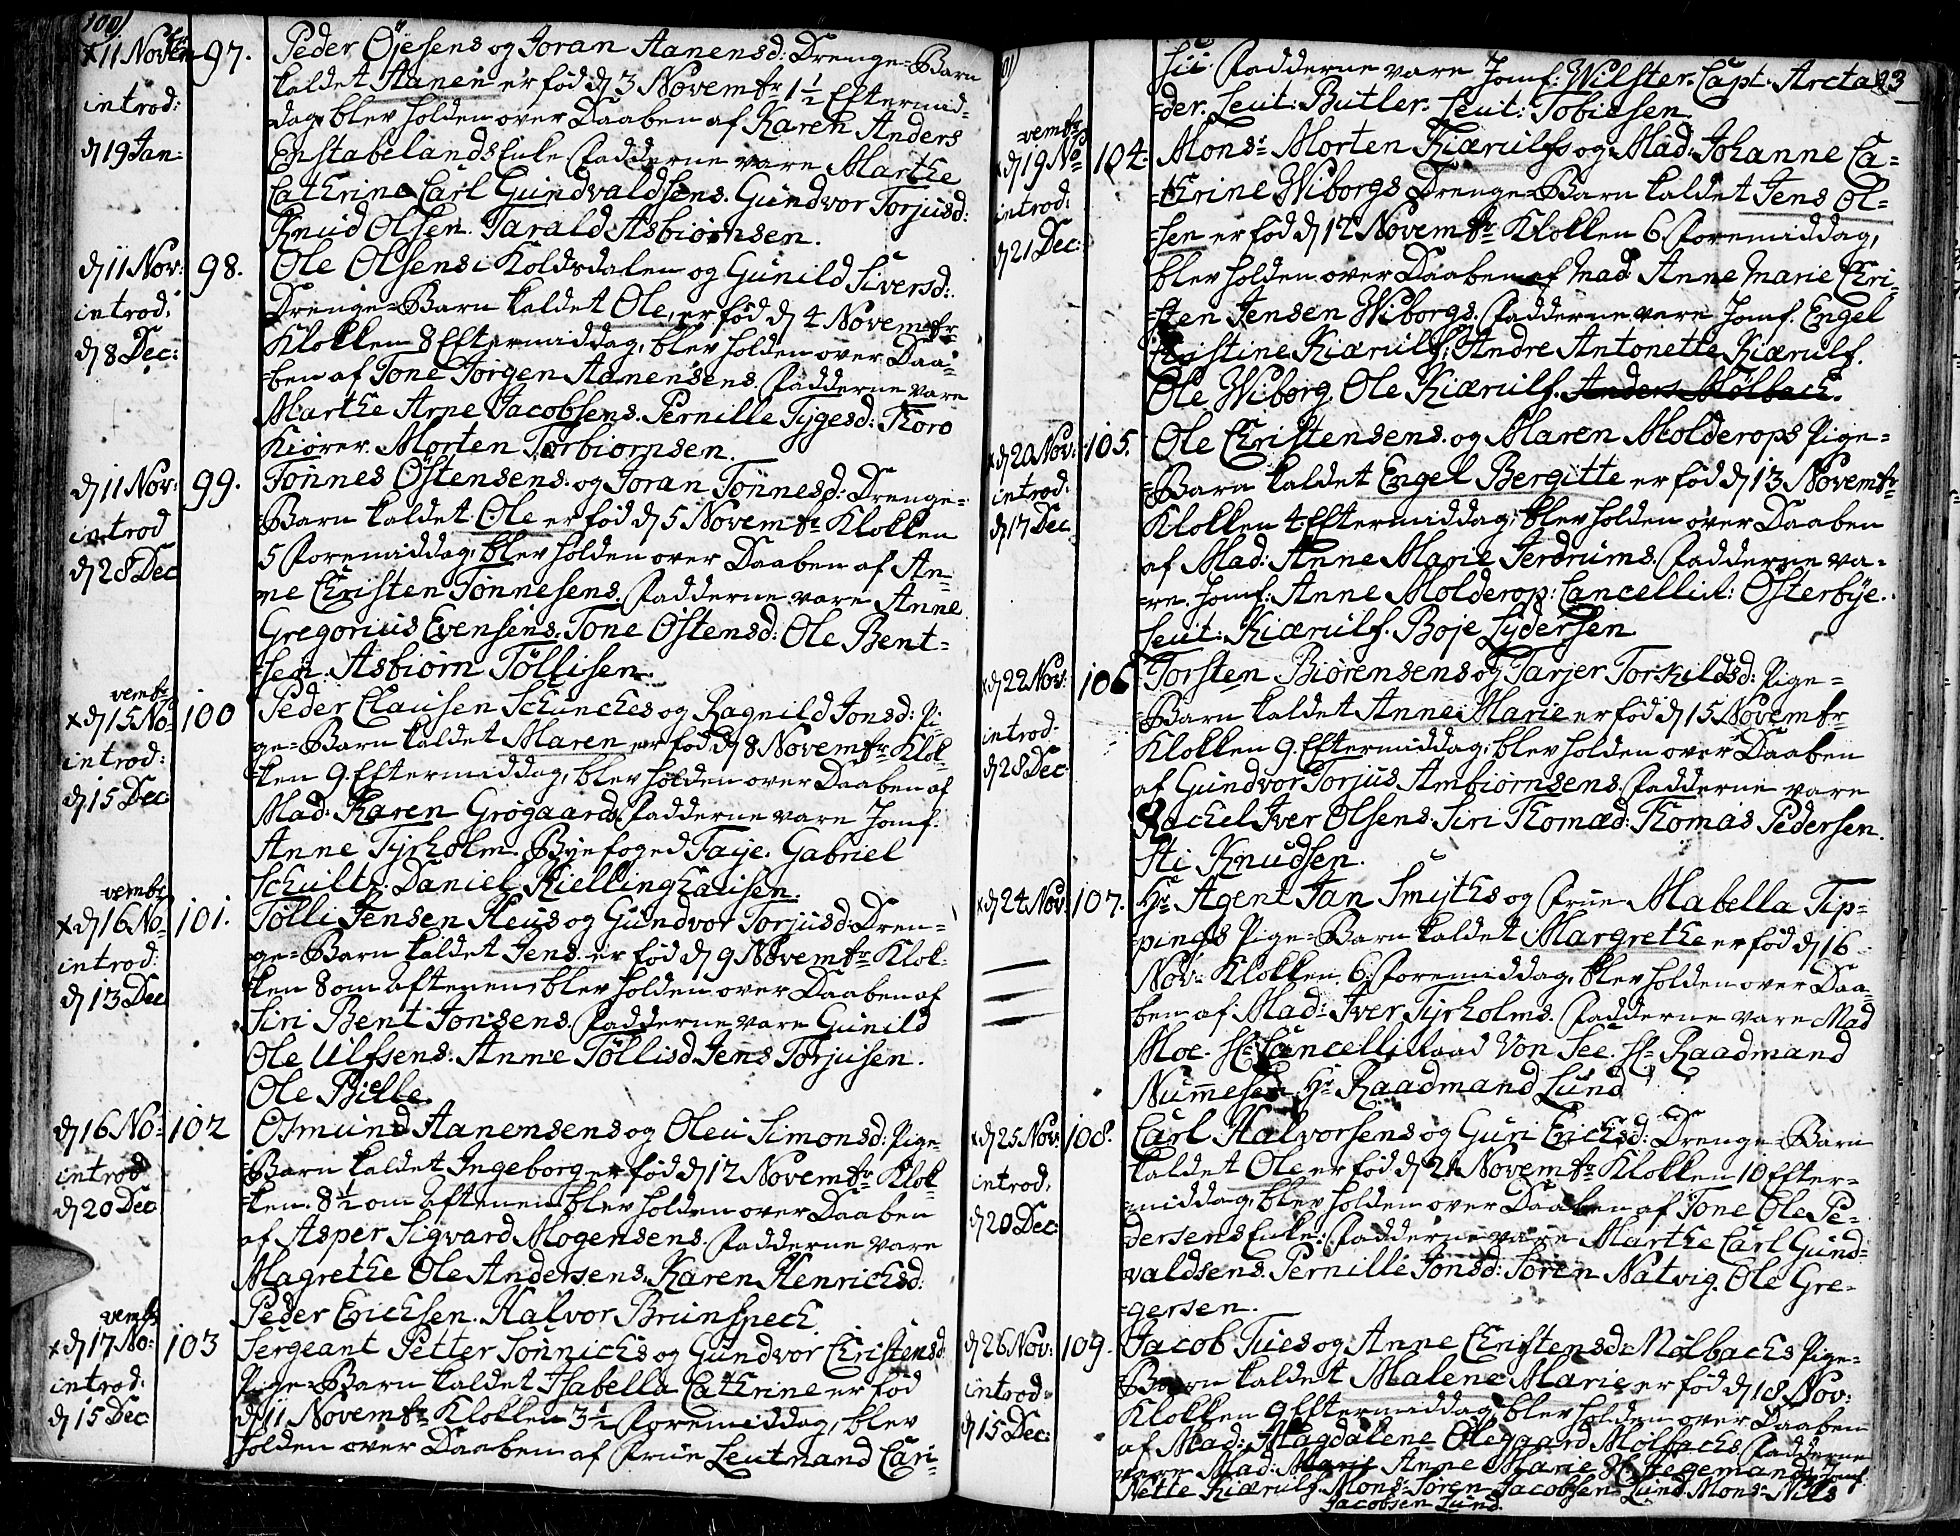 100
x 11 Novembr 97. Peder Öjesens og Joran Aanensd: Drenge-Barn
introd: kaldet Aanen er fød d 3 Novembr 1 1/2 Eftermid-
dag, blev holden over Daaben af Karen Anders
d 19 Jan: Enstabelands Enke Fadderne vare Marthe
Cathrine Carl Gundvaldsens. Gundvor Torjusd:
Knud Olsen. Tarald Asbiørnsen.
d 11 Nov: 98. Ole Olsens i Koldsdalen og Gunild Siversd:
introd: Drenge-Barn kaldet Ole, er fød d 4 Novembr
d 8 Dec: Klokken 8 Eftermiddag, blev holden over Daa-
ben af Tone Jørgen Aanensens. Fadderne vare
Marthe Arne Jacobsens. Pernille Tygesd: Thoro
Kiörer. Morten Torbiørnsen.
d 11 Nov: 99. Tönnes Östensens. og Joran Tönnesd: Drenge-
introd -Barn kaldet Ole er fød d 5 Novembr Klokken
d 28 Dec 5 Foremiddag, blev holden over Daaben af An-
ne Christen Tönnesens. Fadderne vare Anne
Gregorius Evensens. Tone Östensd: Ole Bent-
-sen. Asbiørn Töllisen.
vembr
x d 15 No- 100 Peder Clausen Schunches og Ragnild Jonsd: Pi-
introd: ge-Barn kaldet Maren er fød d 8 Novembr Klok-
d 15 Dec: ken 9 Eftermiddag, blev holden over Daaben af
Mad: Karen Grögaards. Fadderne vare Jomf:
Anne Tyrholm. Byefoged Faye. Gabriel
Schultz. Daniel Kiellinghausen.
vembr
x d 16 No- 101. Tölli Jensen Heus og Gundvor Torjusd: Dren-
introd: ge-Barn kaldet Jens er fød d 9 Novembr Klok-
d 13 Dec ken 8 om aftenen, blev holden over Daaben af
Siri Bent Jonsens. Fadderne vare Gunild
Ole Ulfsens. Anne Töllisd Jens Torjusen.
Ole Bille.
d 16 No- 102 Osmund Aanensens og Oleu Simonsd: Pige-
introd -Barn kaldet Ingeborg er fød d 12 Novembr Klok-
d 20 Dec ken 8 1/2 om aftenen blev holden over Daaben
af Asper Sigvard Mogensens. Fadderne vare
Magrethe Ole Andersens. Karen Henrichsd:
Peder Erichsen. Halvor Brunspech.
vembr
x d 17 No: 103 Sergeant Petter Sönnichs og Gundvor Christensd
introd: Pige-Barn kaldet Isabella Cathrine er fød
d 15 Dec d 11 Novembr Klokken 3 1/2 Foremiddag, blev
holden over Daaben af Frue Leutnand Cari-
101
sii. Fadderne vare Jomf: Wilster. Capt: Arcta- 93
-der. Leut: Butler. Leut: Tobiesen.
vembr
x d 19 No 104. Monsr Morten Kiærulfs og Mad: Johanne Ca-
introd: -thrine Wiborgs Drenge-Barn kaldet Jens Ol-
d 21 Dec: -sen er fød d 12 Novembr Klokken 6 Foremiddag,
blev holden over Daaben af Mad: Anne Marie Chri-
-sten Jensen Wiborgs. Fadderne vare Jomf. Engel
Christine Kiærulf. Andre Antonette Kiærulf.
Ole Wiborg. Ole Kiærulf. Anders Mölbach.
x d 20 Nov: 105. Ole Christensens. og Maren Molderops Pige-
introd: -Barn kaldet Engel Bergitte er fød d 13 Novembr
d 17 Dec Klokken 4 Eftermiddag, blev holden over Daaben
af Mad: Anne Marie Jerdrums. Fadderne va-
-re. Jomf: Anne Molderop: Cancellist: Österbye.
Leut: Kiærulf. Boje Lydersen
x d 22 Nov: 106 Torsten Biörensens og Tarjer Torkildsd: Pige-
introd: -Barn kaldet Anne Marie er fød d 15 Novembr
d 28 Dec: Klokken 9. Eftermiddag, blev holden over Daaben
af Gundvor Torjus Ambiørnsens. Fadderne vare
Rachel Iver Olsens. Siri Thomæd: Thomas Pedersen.
Sti Knudsen.
x d 24 Nov: 107. Hr Agent Jan Smiths og Frue Mabella Tip-
pings Pige-Barn kaldet Margrethe er fød d 16
Nov: Klokken 6 Foremiddag, blev holden over Daa-
ben af Mad: Iver Tyrholms. Fadderne vare Mad
Moe. Hr Cancelliraad Von See. Hr Raadmand
Nummesen Hr Raadmand Lund
x d 25 Nov: 108. Carl Halvorsens og Guri Erichsd: Drenge-Barn
introd: kaldet Ole er fød d 21 Novembr Klokken 10 Efter-
d 20 Dec: -middag, blev holden over Daaben af Tone Ole Pe-
dersens Enke. Fadderne vare Marthe Carl Gund-
valdsens. Pernille Jonsd: Sören Natvig. Ole Gre-
-gersen.
d 26 Nov: 109. Jacob Tues og Anne Christensd: Mölbachs Pige-
introd: -Barn kaldet Malene Marie er fød d 18 Nov:
d 15 Dec: Klokken 9 Eftermiddag, blev holden over Daaben
af Mad: Magdalene Olegaard Mölbachs. Fadderne
vare Mad: Anne Marie Hegemand. Jomf:
Nette Kiærulf. Monsr Sören Jacobsen Lund. Monsr Niels
Jacobsen Lund.